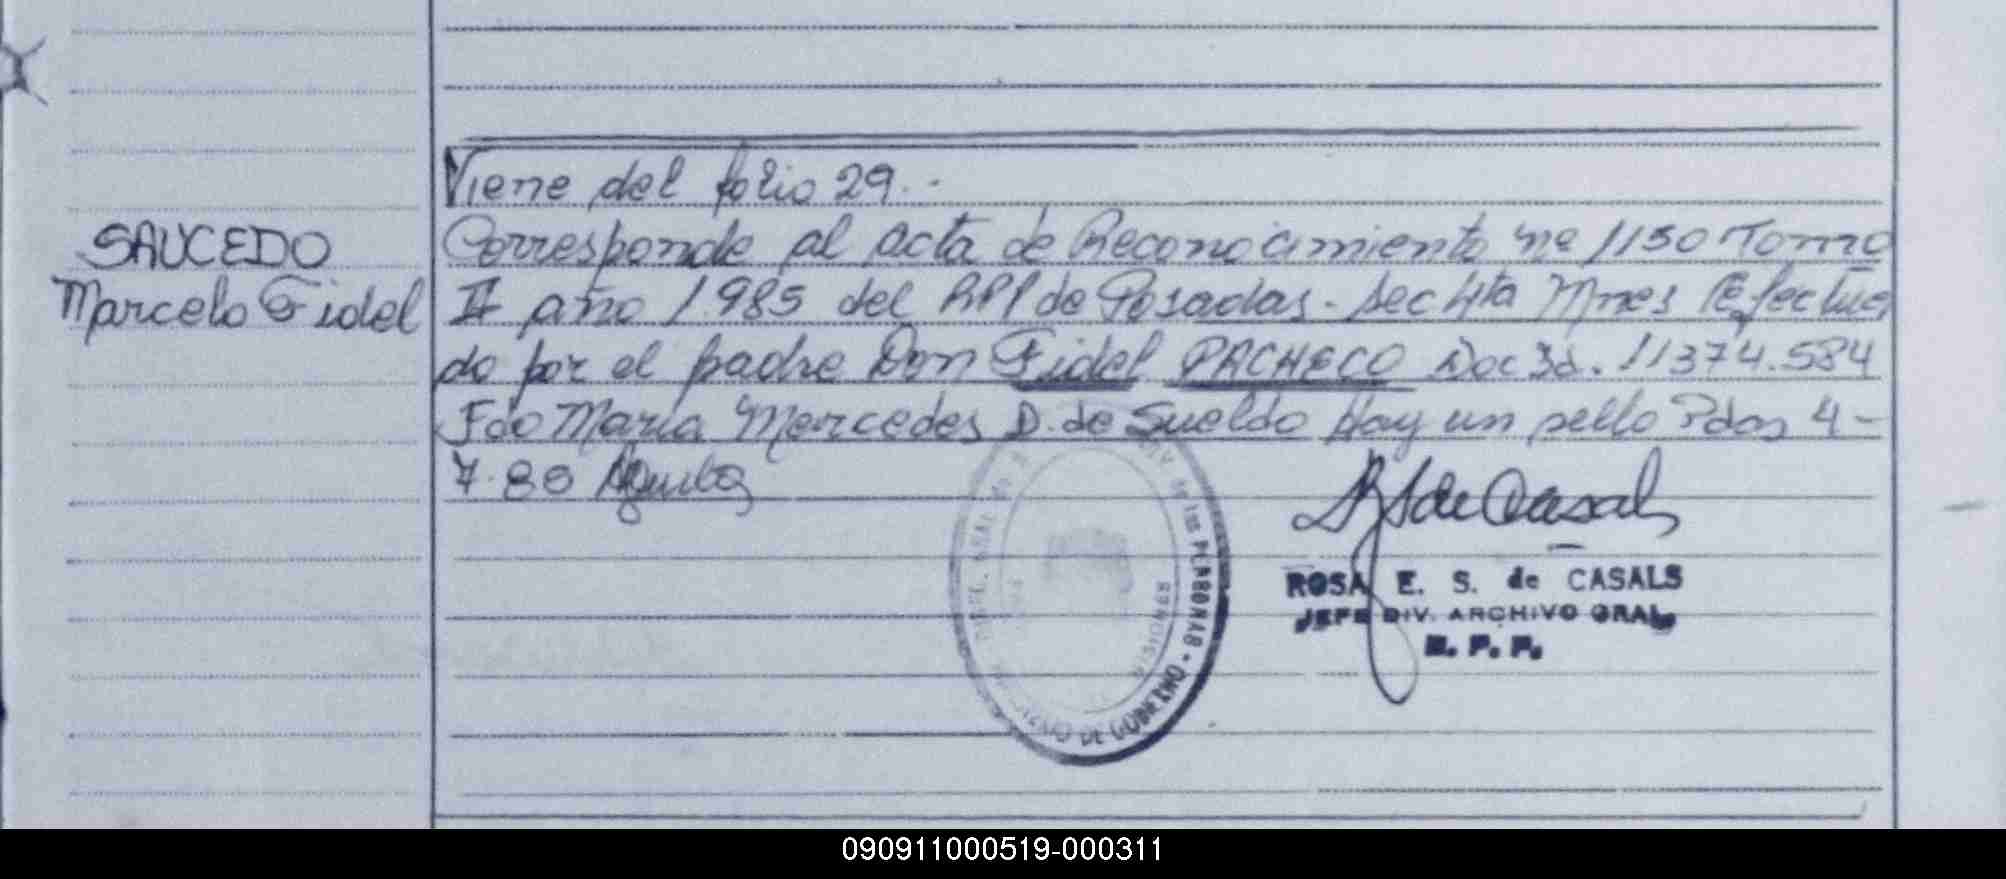 Viene del folio 29..
SAUCEDO
Marcelo Fidel
Corresponde al acta de Reconocimiento Nº 1150 Tomo
II año 1.985 del RPP de Posadas - Secc 4ta Mnes Efectua
do por el padre Don Fidel PACHECO Doc Id. 11374.584
Fdo Maria Mercedes D. de Sueldo Hay un sello Pdas 4-
7.86
de Casals
ROSA E. S. de CASALS
JEFE DIV. ARCHIVO GRAL.
R. P. P.
GRAL de las PERSONAS
MINISTERIO DE GOBIERNO
MISIONES
090911000519-000311